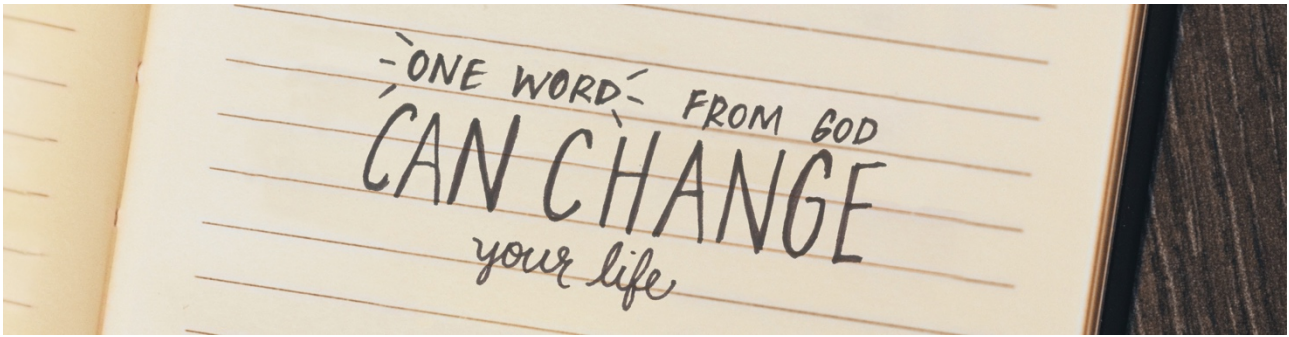 ONE WORD FROM GOD
CAN CHANGE
your life